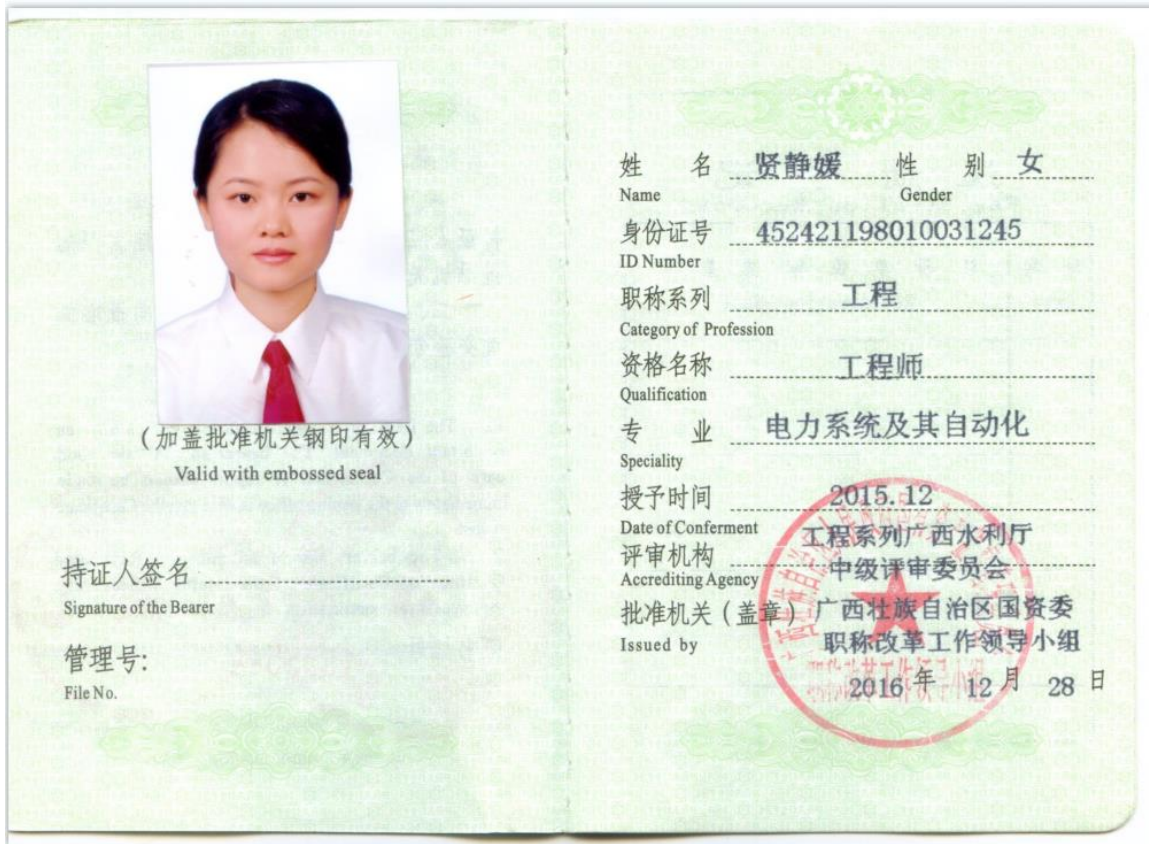 (加盖批准机关钢印有效)
Valid with embossed seal
持证人签名
Signature of the Bearer
管理号:
File No.
姓 名 贤静媛 性 别 女
Name Gender
身份证号 452421198010031245
ID Number
职称系列 工程
Category of Profession
资格名称 工程师
Qualification
专 业 电力系统及其自动化
Speciality
授予时间 2015.12
Date of Conferment 工程系列广西水利厅
评审机构 中级评审委员会
Accrediting Agency
批准机关(盖章) 广西壮族自治区国资委
Issued by 职称改革工作领导小组
2016 年 12 月 28 日